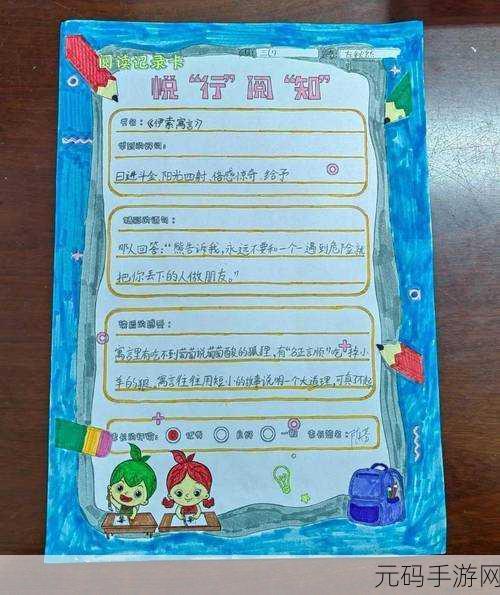 阅读记录卡
悦“行”阅“知”
书名：《伊索寓言》
学到的好词：
日进斗金、阳光四射、倍感惊奇、给予
精彩的语句：
那人回答：“熊告诉我，永远不要和一个一遇到危险就
把你丢下的人做朋友。”
读后的感受：
寓言里有吃不到葡萄说葡萄酸的狐狸，有“名正言顺”吃掉小
羊的狼，寓言往往用短小的故事说明一个大道理，可真不起
家长的评价： 优秀 良好 一般 家长签名：
元码手游网